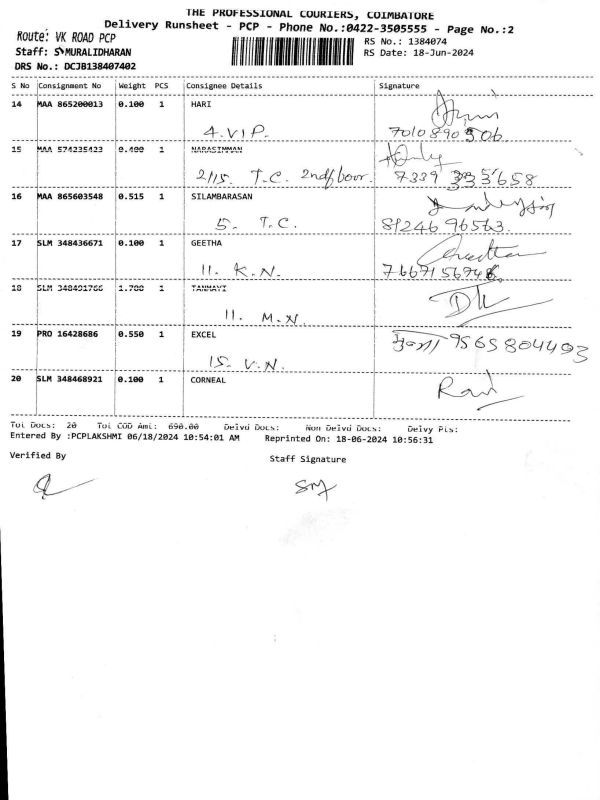 THE PROFESSIONAL COURIERS, COIMBATORE
Delivery Runsheet - PCP - Phone No.:0422-3505555 - Page No.:2
Route: VK ROAD PCP
RS No.: 1384074
Staff: S MURALIDHARAN
RS Date: 18-Jun-2024
DRS No.: DCJB138407402
S No Consignment No Weight PCS Consignee Details Signature
14 MAA 865200013 0.100 1 HARI
4.V.I.P. 7010890506
15 MAA 574235423 0.400 1 NARASIMMAN
2/15. T.C. 2nd floor. 7339 333658
16 MAA 865603548 0.515 1 SILAMBARASAN
5. T.C. 8124696563.
17 SLM 348436671 0.100 1 GEETHA
11. K.N.
18 SLM 348491766 1.700 1 TANMAYI
11. M.N
19 PRO 16428686 0.550 1 EXCEL 9565804493
15. V.N.
20 SLM 348468921 0.100 1 CORNEAL
Tot Docs: 20 Tot COD Amt: 690.00 Delvd Docs: Non Delvd Docs: Delvy Pts:
Entered By :PCPLAKSHMI 06/18/2024 10:54:01 AM Reprinted On: 18-06-2024 10:56:31
Verified By
Staff Signature